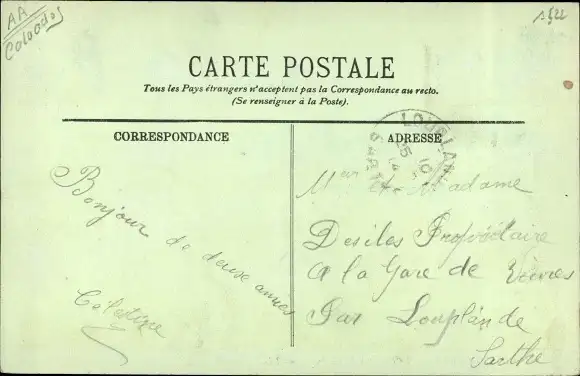 AA
Calvados
CARTE POSTALE
Tous les Pays étrangers n'acceptent pas la Correspondance au recto.
(Se renseigner à la Poste).
CORRESPONDANCE
ADRESSE
Bonjour de deuse annes
Celestine
et Madame
Desiles Propriétaire
A la Gare de
Par Louplande
Sarthe